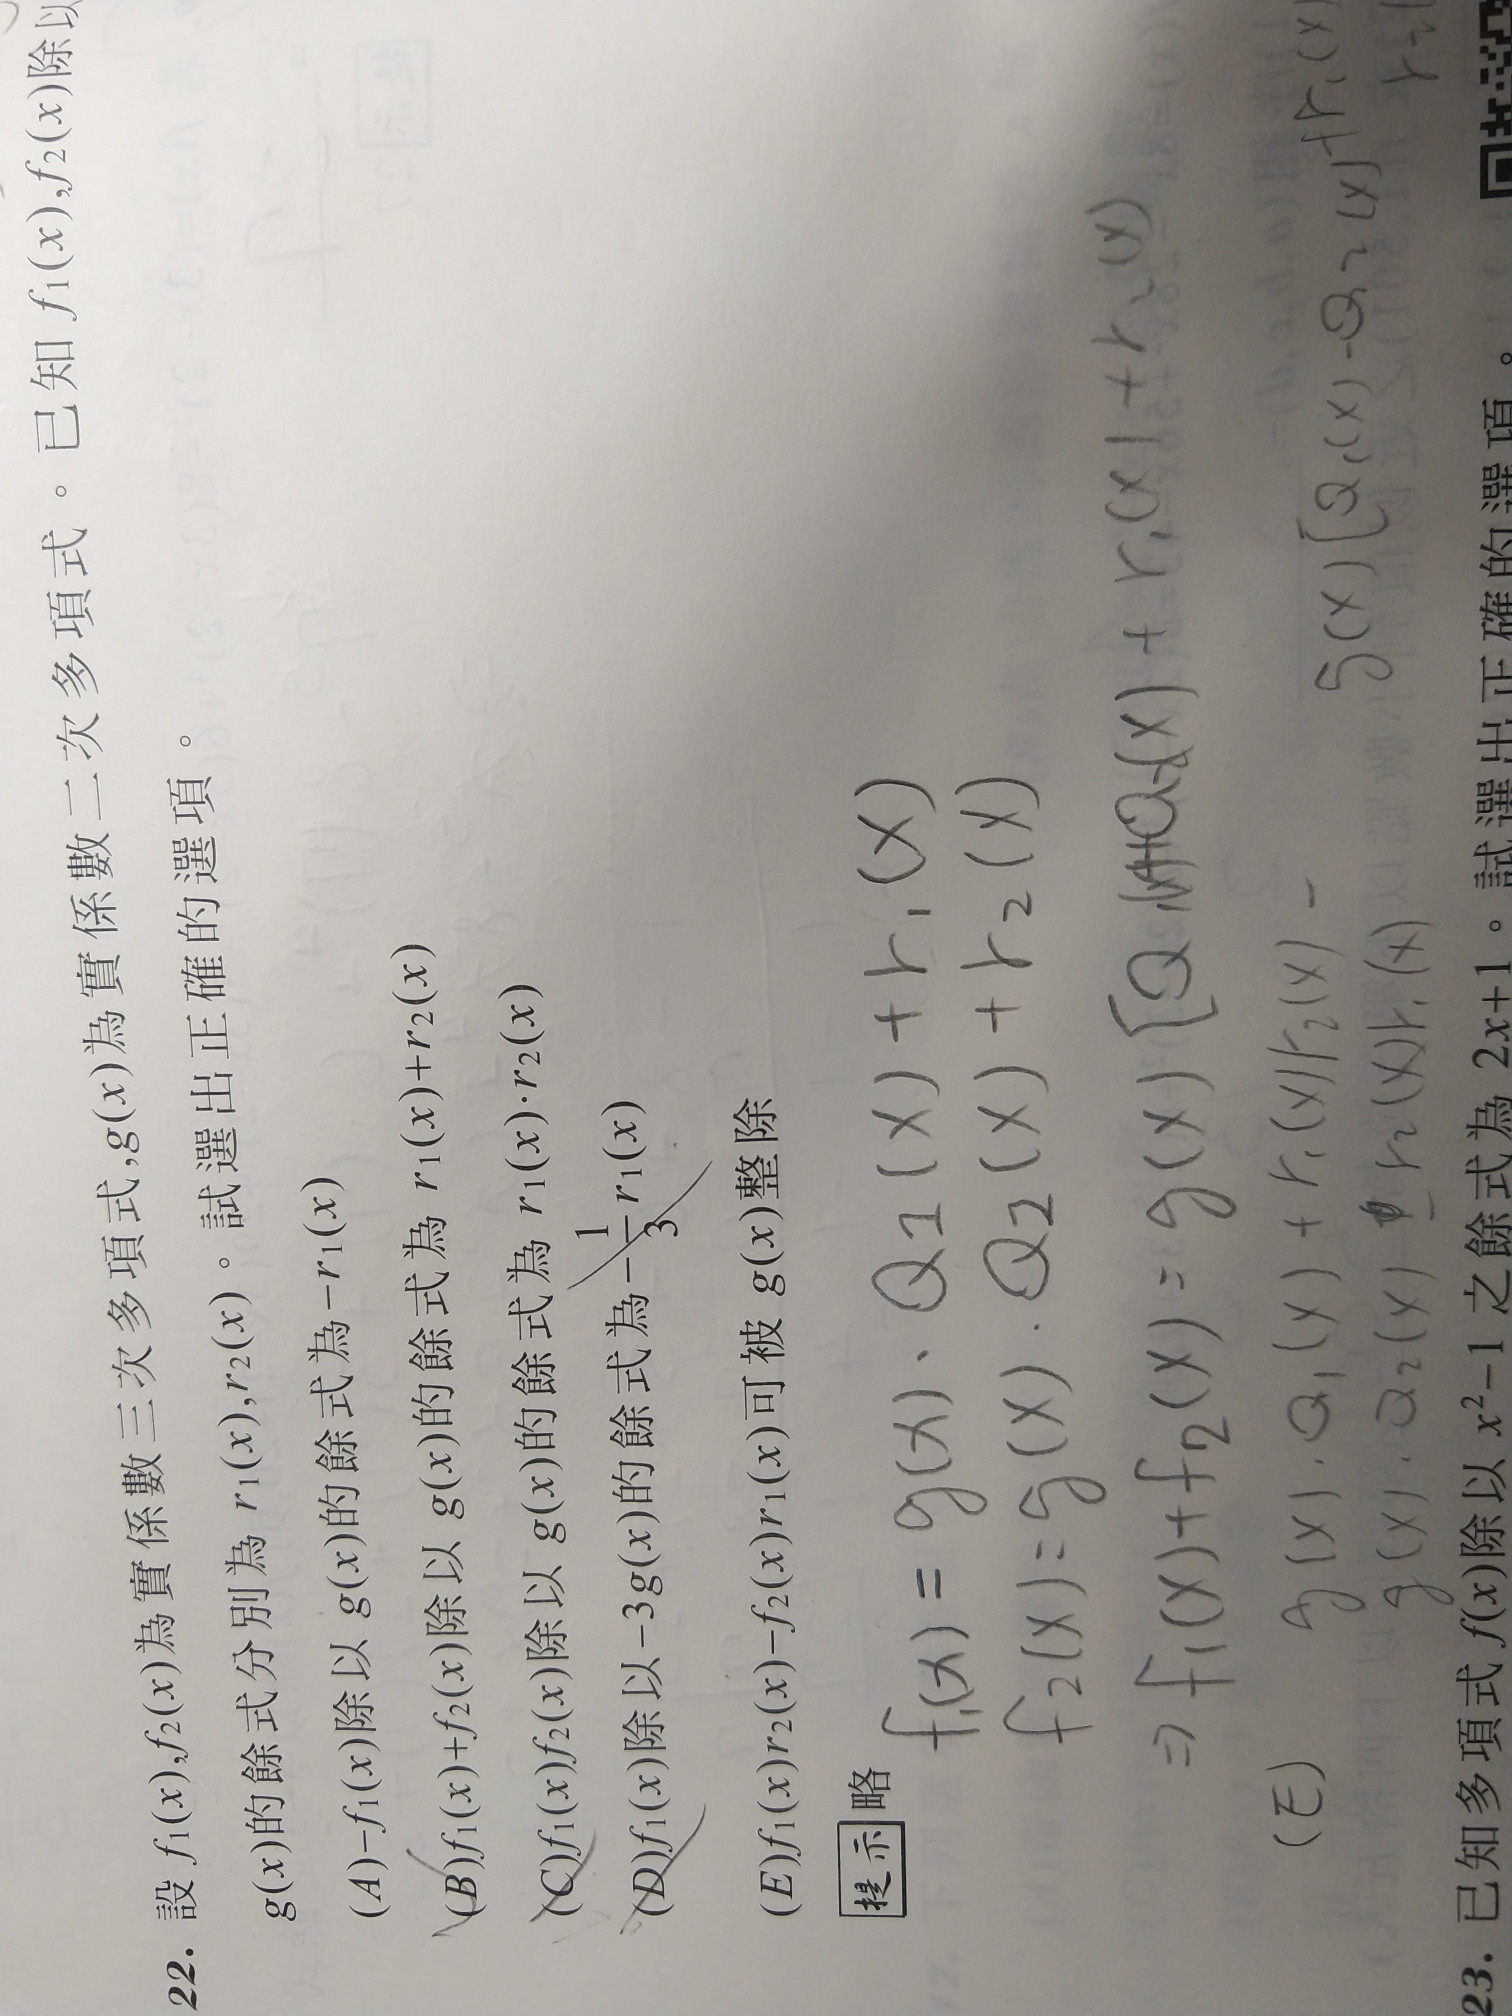 22. 設 f₁(x),f₂(x)為實係數三次多項式,g(x)為實係數二次多項式。已知 f₁(x),f₂(x)除以
g(x)的餘式分別為 r₁(x),r₂(x)。試選出正確的選項。
(A)−f₁(x)除以 g(x)的餘式為−r₁(x)
(B)f₁(x)+f₂(x)除以 g(x)的餘式為 r₁(x)+r₂(x)
(C)f₁(x)f₂(x)除以 g(x)的餘式為 r₁(x)·r₂(x)
(D)f₁(x)除以−3g(x)的餘式為−1/3 r₁(x)
(E)f₁(x)r₂(x)−f₂(x)r₁(x)可被 g(x)整除
提示 略
f₁(x) = g(x)·Q₁(x)+r₁(x)
f₂(x)=g(x)·Q₂(x)+r₂(x)
⇒ f₁(x)+f₂(x)=g(x)[Q₁(x)+Q₂(x)+r₁(x)+r₂(x)
(E) g(x)·Q₁(x)+r₁(x)r₂(x) −
g(x)·Q₂(x) r₂(x)r₁(x)
g(x)[Q₁(x)-Q₂(x)+r₁(x)
23. 已知多項式 f(x)除以 x²−1 之餘式為 2x+1。試選出正確的選項。